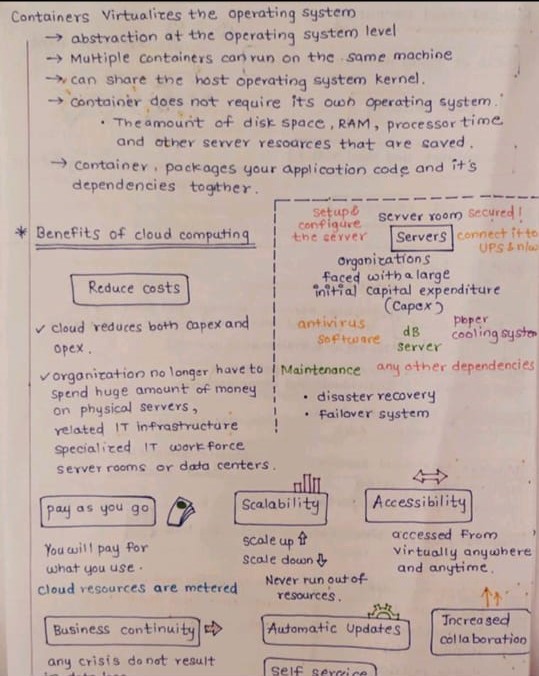 Containers Virtualizes the operating system
→ abstraction at the operating system level
→ Multiple containers can run on the same machine
→ can share the host operating system kernel.
→ container does not require its own operating system.
• The amount of disk space, RAM, processor time
and other server resoarces that are saved.
→ container, packages your application code and it's
dependencies togther.
* Benefits of cloud computing
Reduce costs
✓ cloud reduces both capex and
opex.
✓ organization no longer have to
spend huge amount of money
on physical servers,
related IT infrastructure
specialized IT workforce
server rooms or data centers.
setup &
configure
the server
server room secured!
Servers
connect it to
UPS & n/w
organizations
faced with a large
initial capital expenditure
(Capex)
antivirus
software
dB
server
proper
cooling system
Maintenance any other dependencies
• disaster recovery
• failover system
pay as you go
You will pay for
what you use.
cloud resources are metered
Scalability
scale up ⇧
Scale down ⇩
Never run out of
resources.
Accessibility
accessed from
virtually anywhere
and anytime.
Business continuity ⇨
any crisis do not result
Automatic Updates
Self service
Increased
collaboration